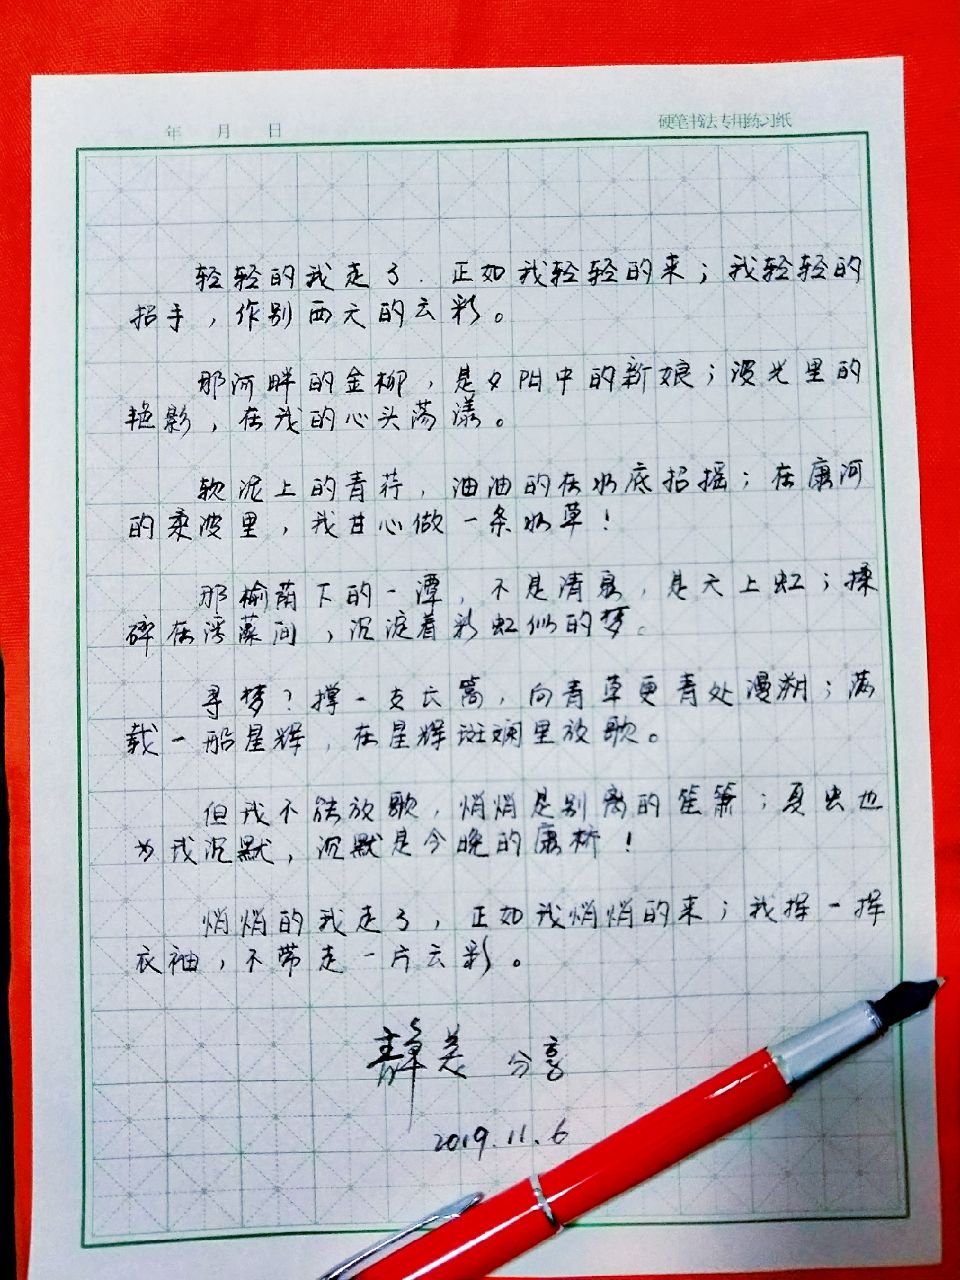 年 月 日 硬笔书法专用练习纸
轻轻的我走了.正如我轻轻的来;我轻轻的
招手,作别西天的云彩。
那河畔的金柳,是夕阳中的新娘;波光里的
艳影,在我的心头荡漾。
软泥上的青荇,油油的在水底招摇;在康河
的柔波里,我甘心做一条水草!
那榆荫下的一潭,不是清泉,是天上虹;揉
碎在浮藻间,沉淀着彩虹似的梦。
寻梦?撑一支长篙,向青草更青处漫溯;满
载一船星辉,在星辉斑斓里放歌。
但我不能放歌,悄悄是别离的笙箫;夏虫也
为我沉默,沉默是今晚的康桥!
悄悄的我走了,正如我悄悄的来;我挥一挥
衣袖,不带走一片云彩。
分享
2019.11.6